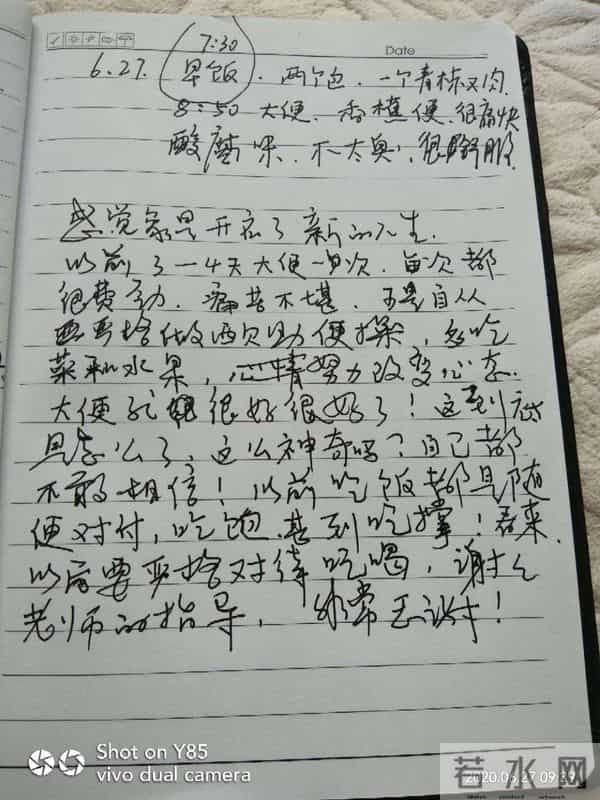 Date
7:30
6.27. 早饭. 两个包. 一个青椒叉肉.
8:50 大便. 香蕉便. 很痛快
酸腐味. 不太臭. 很舒服.
感觉象是开启了新的人生.
以前3-4天大便一次. 每次都
很费劲. 痛苦不堪. 可是自从
严格做两次助便操, 多吃
菜和水果, 努力改变心态.
大便就很好很好了! 这到底
是怎么了, 这么神奇吗? 自己都
不敢相信! 以前吃饭都是随
便对付, 吃饱甚到吃撑! 看来
以后要严格对待吃喝, 谢谢
老师的指导, 非常感谢!
Shot on Y85
vivo dual camera
若水网
2020.06.27 09:39